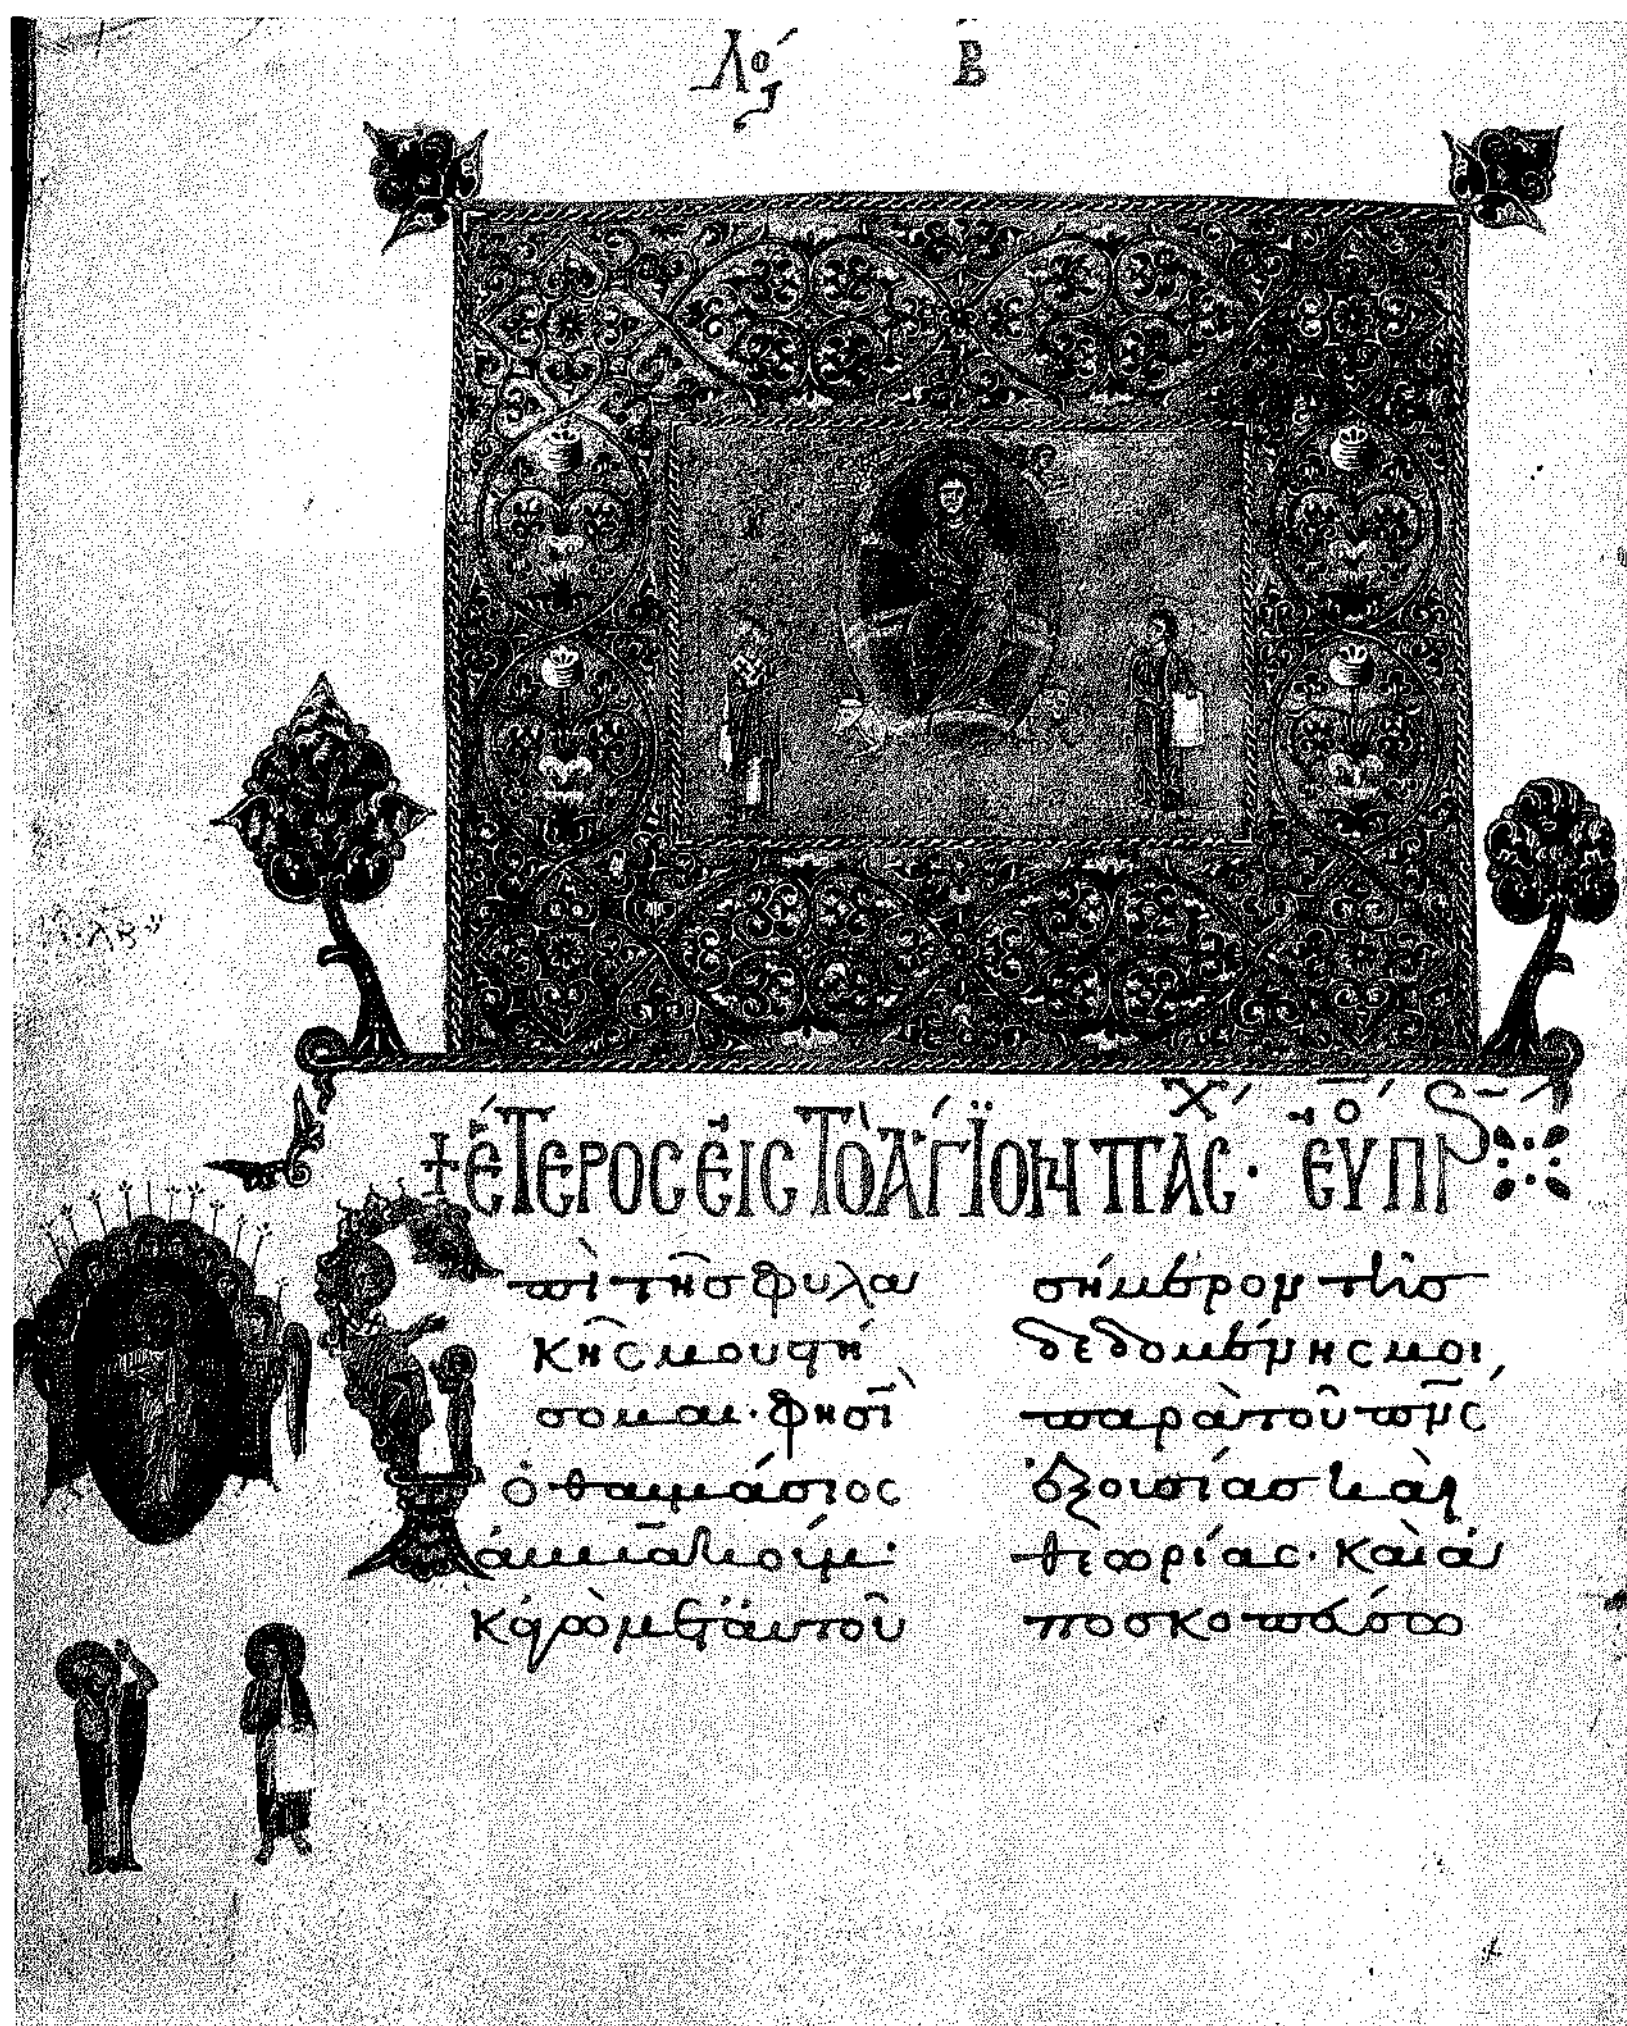 Λό Β
+ ἕτερος εἰς τὸ ἅγιον πάσχ· εὐ πρ
πὶ τῆς φυλα
κῆς μου στή
σομαι· φησὶ
ὁ θαυμάσιος
ἀμβακούμ·
κἀγὼ μετ' αὐτοῦ
σήμερον τῆς
δεδομένης μοι
παρὰ τοῦ πνς
ἐξουσίας καὶ
θεωρίας· καὶ ἀ
ποσκοπεύσω